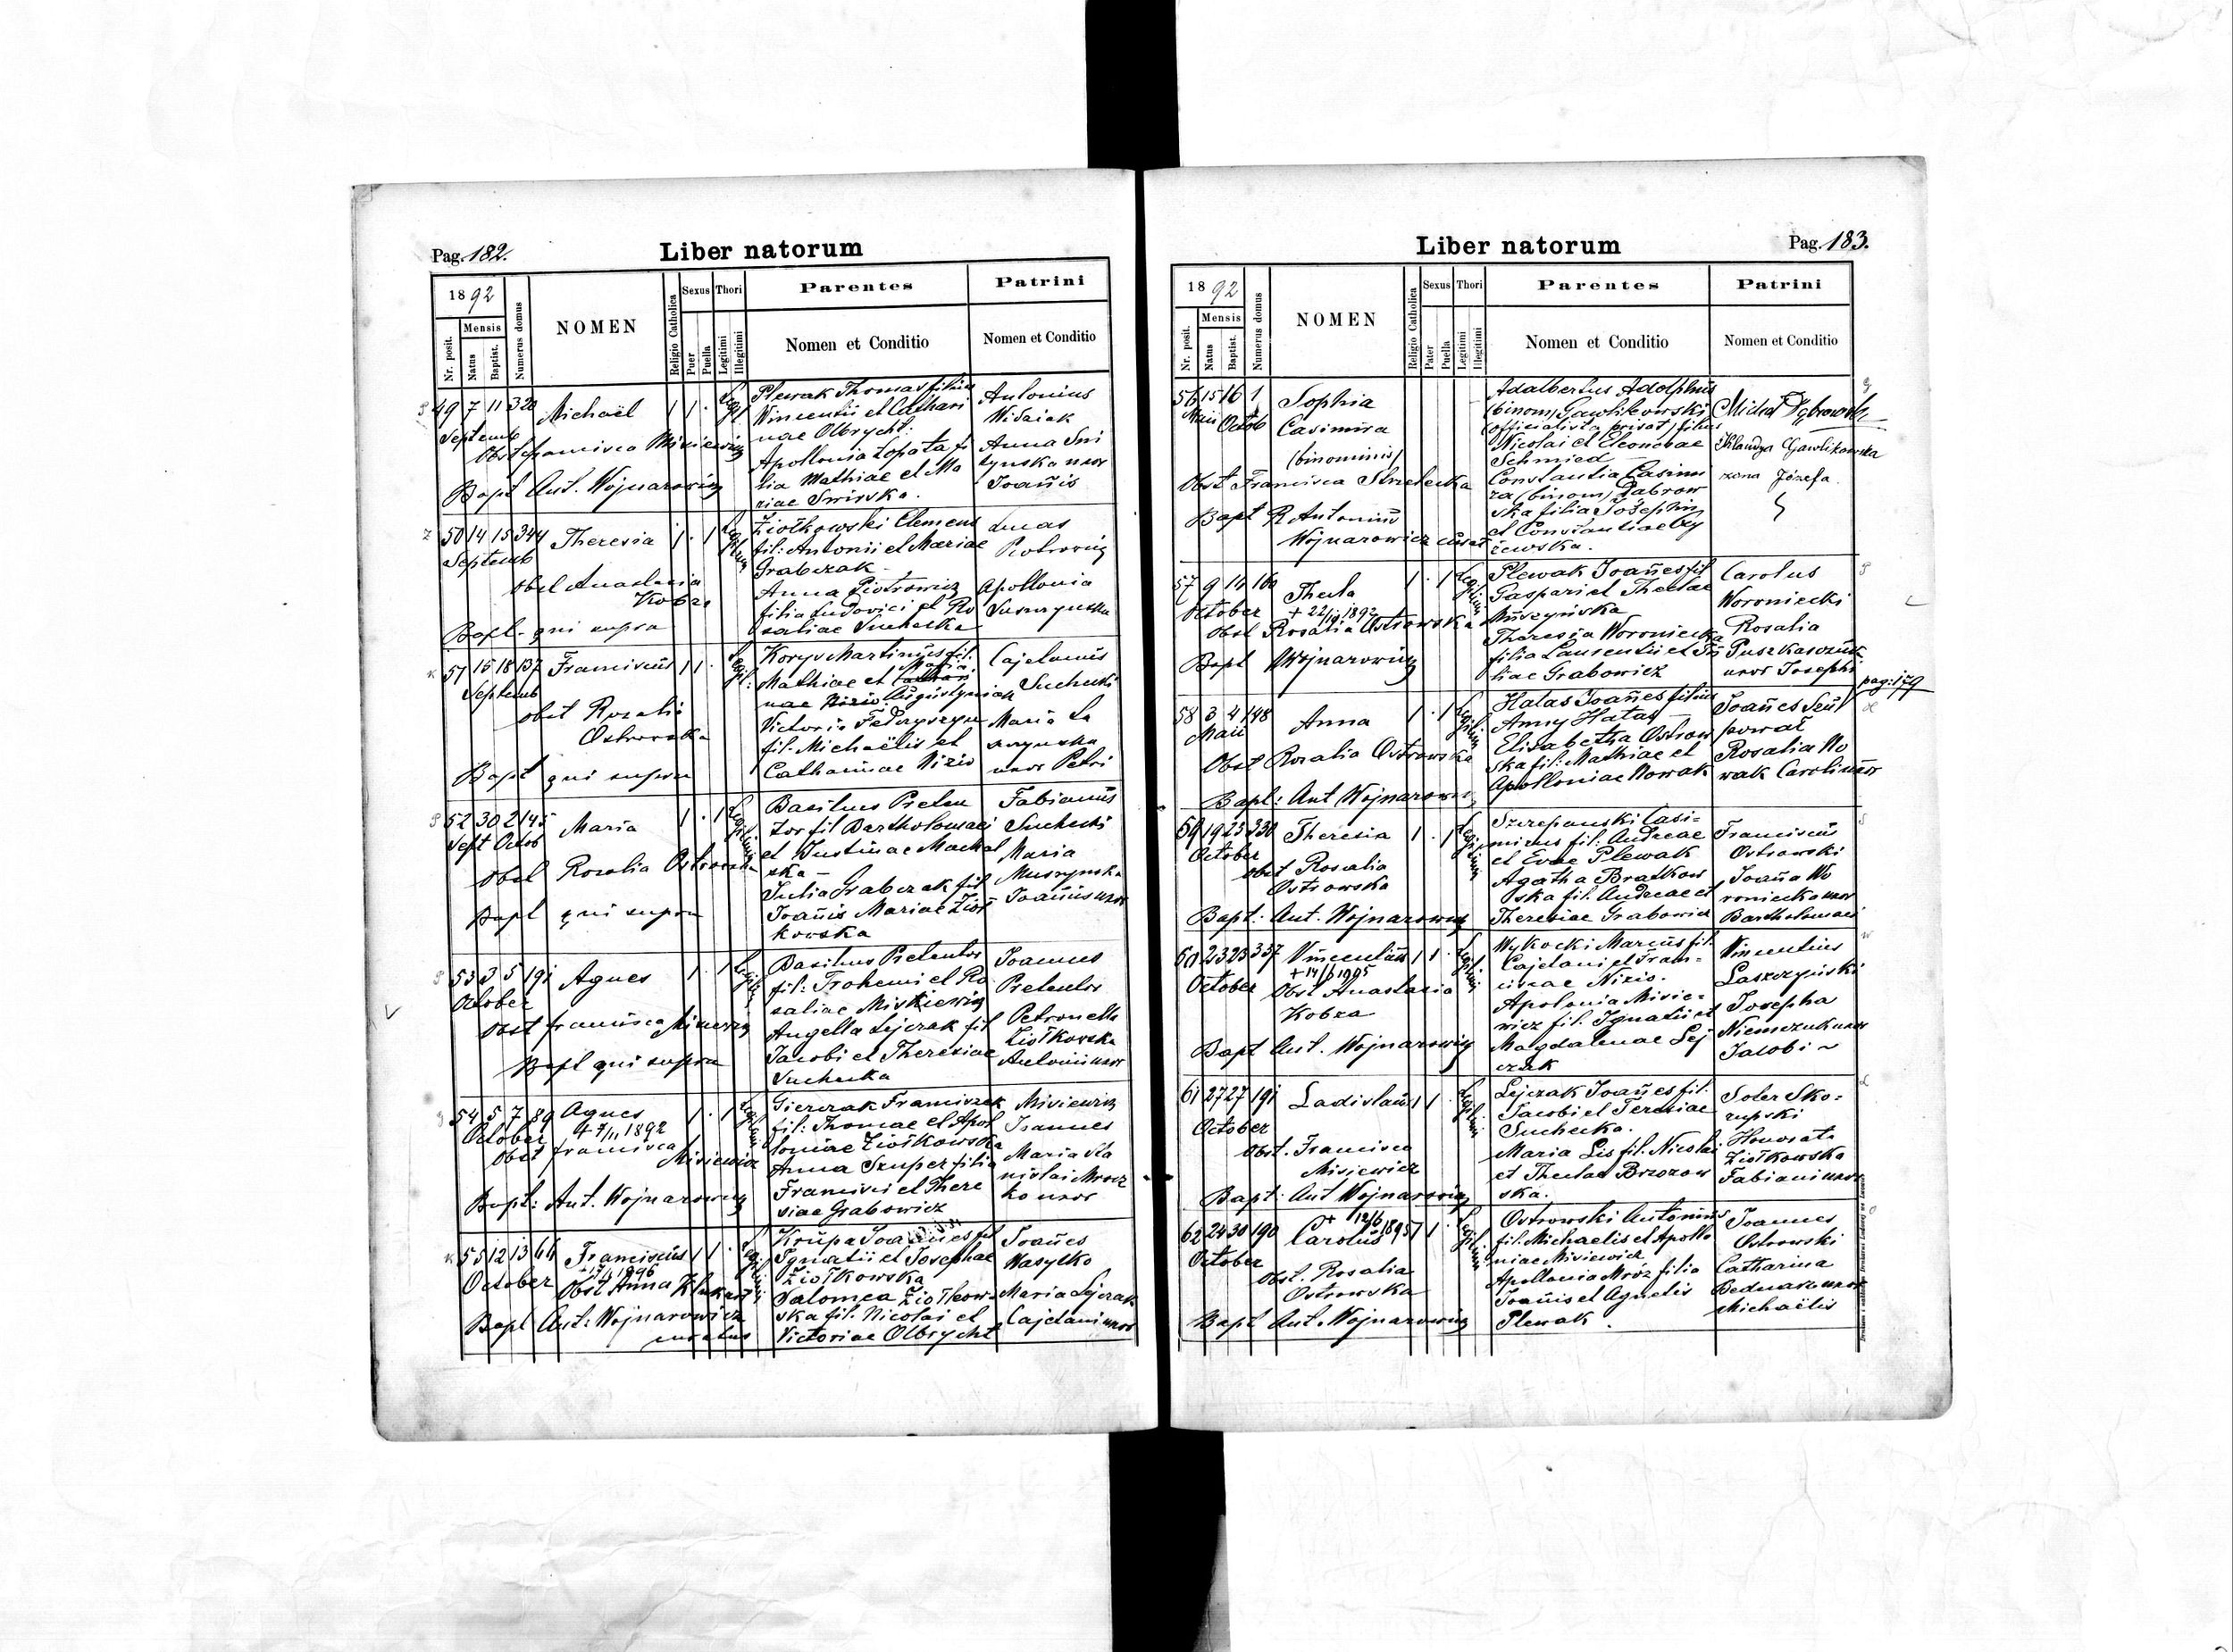 Pag. 182.
Liber natorum
1892
Mensis
Nr. posit.
Natus
Baptist.
Numerus domus
NOMEN
Religio Catholica
Sexus
Puer
Puella
Thori
Legitimi
Illegitimi
Parentes
Nomen et Conditio
Patrini
Nomen et Conditio
49 7 11 320 Michaël 1 1 .
Septemb
Bapt Ant. Wojnarowicz
Plewak Thomas filius
Vincentii et Cathari
nae Olbrycht:
Apollonia Łopata fi
lia Mathiae et Ma
riae
Antonius
Anna
Joanis
50 14 15 344 Theresia 1 . 1
Septemb
Obst Anastasia
Kobza
Bapt. qui supra
Ziołkowski Clemens
fil: Antonii et Mariae
Grabczak
Anna Piotrowicz
filia Ludovici et Ro
saliae Suchecka
Lucas
Apollonia
15 18 137 Franciscus 1 1 .
Septemb
Obst Rosalia
Ostrowska
Bapt qui supra
Martinus fil.
Mathiae et
Maria
Augustyniak
fil. Michaëlis et
Catharinae Nizio
Cajetanus
Suchecki
Maria
uxor Petri
52 30 2 145 Maria 1 . 1
Sept Octob
Obst Rosalia
Bapt qui supra
Basilius Preten
tor fil Bartholomaei
et Justinae
ska
Julia Grabczak fil
Joanis Mariae Zioł
kowska
Fabianus
Suchecki
Maria
Muszynska
Joannis uxor
53 3 5 191 Agnes 1 . 1
October
Obst Francisca
Bapt qui supra
Basilius Pretentor
fil: Trohemi et Ro
saliae Misikiewicz
Angella Lejczak fil
Jacobi et Theresiae
Suchecka
Joannes
Pretentor
Petronella
Ziołkowska
Antonii uxor
54 5 7 89 Agnes 1 . 1
October
Obst Francisca
Misiewicz
Bapt: Ant. Wojnarowicz
Gierczak Franciszek
fil: Thomae et Apol
loniae Ziołkowska
Anna Szuper filia
Francisci et There
siae Grabowicz
Misiewicz
Joannes
Maria Sta
nislai Mrocz
ko uxor
55 12 13 Franciscus 1 1 .
October
Obst Anna
Bapt Ant. Wojnarowicz
curatus
Krupa
Ignatii et Josephae
Ziołkowska
Salomea Ziołkow-
ska fil. Nicolai et
Victoriae Olbrycht
Joannes
Wasylko
Maria Lejczak
Cajetani uxor
Liber natorum
Pag. 183.
1892
Mensis
Nr. posit.
Natus
Baptist.
Numerus domus
NOMEN
Religio Catholica
Sexus
Pater
Puella
Thori
Legitimi
Illegitimi
Parentes
Nomen et Conditio
Patrini
Nomen et Conditio
56 15 16 1 Sophia
Maii Octob Casimira
(binominis)
Obst Francisca
Bapt R Antonius
Wojnarowicz curat
Adalbertus Adolphus
(binom) Gawlikowski
(officialista privat) filius
Nicolai et Eleonorae
Schmied
Constantia Casimi
ra (binom) Dąbrow
ska filia Josephi
et Constantiae
Michał Dąbrowski
Klaudya Gawlikowska
żona Józefa
57 9 14 160 Thecla 1 . 1
October
Obst Rosalia Ostrowska
Bapt Wojnarowicz
Plewak Joanes fil
Gaspari et Theclae
Muszyńska
Theresia Woroniecka
filia Laurentii et
liae Grabowicz
Carolus
Woroniecki
Rosalia
uxor Josephi
pag: 179
58 3 4 148 Anna 1 . 1
Maii
Obst Rosalia Ostrowska
Bapt: Ant Wojnarowicz
Hałas Joanes filius
Anny Hałas
Elisabetha Ostrow
ska fil: Mathiae et
Apolloniae Nowak
Joanes
Rosalia No
wak Caroli uxor
59 19 23 330 Theresia 1 . 1
October
Obst Rosalia
Ostrowska
Bapt: Ant. Wojnarowicz
Szczepanski Casi=
mirus fil: Andreae
et Evae Plewak
Agatha Bratkow
ska fil. Andreae et
Theresiae Grabowicz
Franciscus
Ostrowski
Joana Wo
roniecka uxor
Bartholomaei
60 23 23 337 Vincentius 1 1 .
October
Obst Anastasia
Kobza
Bapt Ant. Wojnarowicz
Wykocki Marcus fil.
Cajetani et Fran=
ciscae Nizio.
Apolonia Misie=
wicz fil. Ignatii et
Magdalenae Lej
czak
Vincentius
Laszczyński
Josepha
Niemczuk uxor
Jacobi
61 27 27 191 Ladislaus 1 1 .
October
Obst. Francisca
Misiewicz
Bapt: Ant Wojnarowicz
Lejczak Joanes fil:
Jacobi et Teresiae
Suchecka.
Maria Lis fil: Nicolai
et Theclae Brzozow
ska.
Soter Sko=
rupski
Honorata
Ziołkowska
Fabiani uxor
62 24 30 190 Carolus 1 1 .
October
Obst. Rosalia
Ostrowska
Bapt Ant. Wojnarowicz
Ostrowski Antonius
fil. Michaelis et Apollo
niae Misiewicz
Apollonia Mróz filia
Joanis et Agnetis
Plewak.
Joannes
Ostrowski
Catharina
Bednarz uxor
Michaëlis